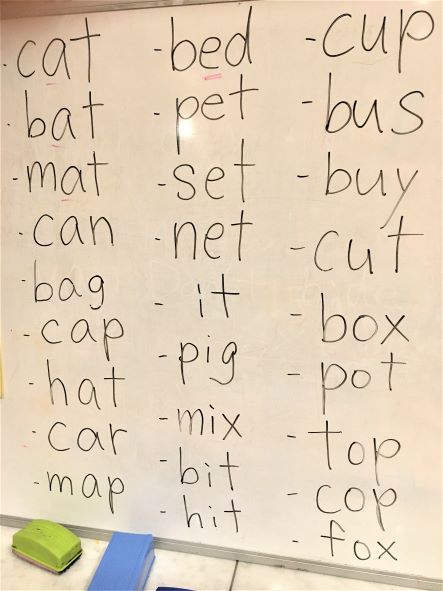 -cat
-bat
-mat
-can
-bag
-cap
-hat
-car
-map
-bed
-pet
-set
-net
-it
-pig
-mix
-bit
-hit
-cup
-bus
-buy
-cut
-box
-pot
-top
-cop
-fox